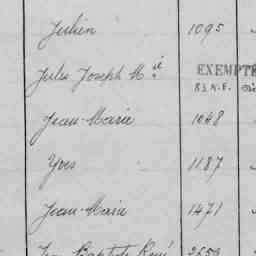 Julien 1095
Jules Joseph M ie EXEMPTÉ
Jean-Marie 1048
Yves 1187
Jean-Marie 1471
Jean Baptiste René